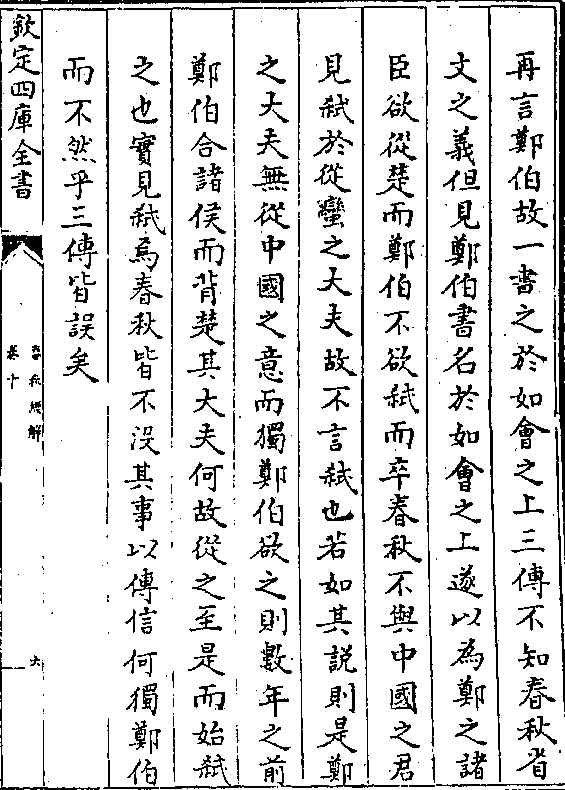 再言鄭伯故一書之於如會之上三傳不知春秋省
文之義但見鄭伯書名於如會之上遂以為鄭之諸
臣欲從楚而鄭伯不欲弑而卒春秋不與中國之君
見弑於從蠻之大夫故不言弑也若如其說則是鄭
之大夫無從中國之意而獨鄭伯欲之則數年之前
鄭伯合諸侯而背楚其大夫何故從之至是而始弑
之也實見弑焉春秋皆不沒其事以傳信何獨鄭伯
而不然乎三傳皆誤矣
欽定四庫全書
春秋經解
卷十
六